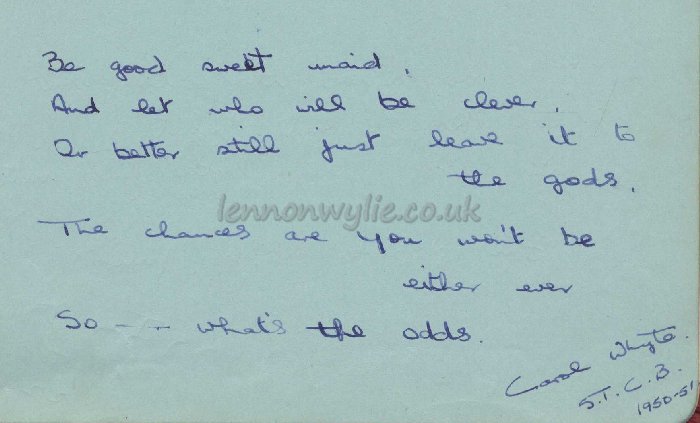 Be good sweet maid,
And let who will be clever,
Or better still just leave it to
the gods.
lennonwylie.co.uk
The chances are you won't be
either ever
So -- - what's the odds.
Carol Whyte.
S.T.C.B.
1950-51